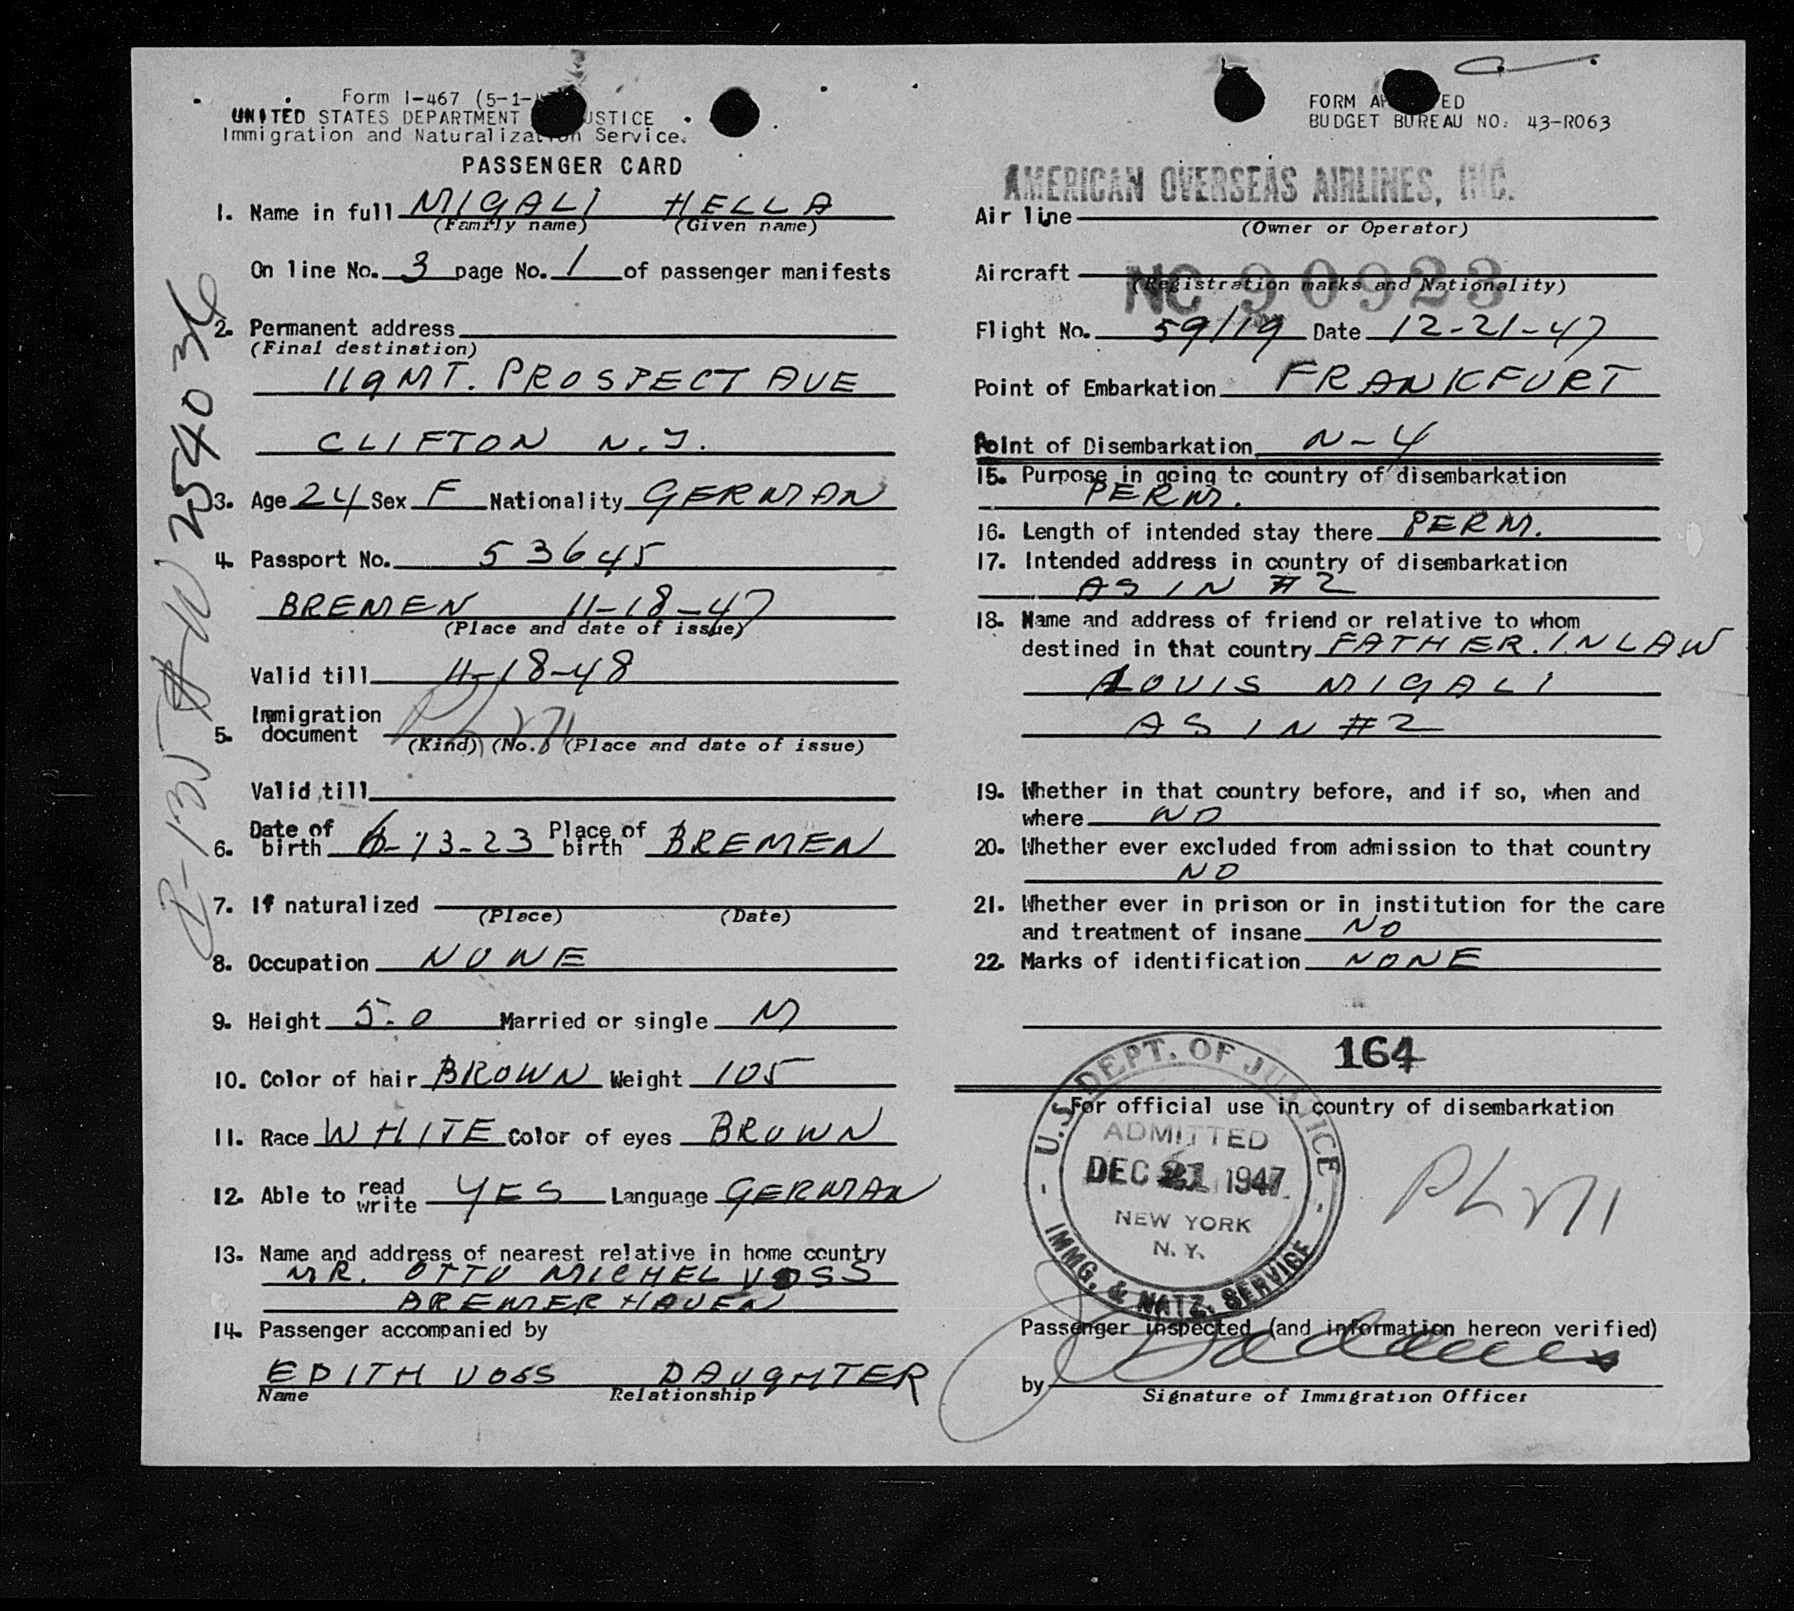 Form I-467 (5-1-
UNITED STATES DEPARTMENT JUSTICE
Immigration and Naturalization Service.
PASSENGER CARD
1. Name in full MIGALI HELLA
(Family name) (Given name)
On line No. 3 page No. 1 of passenger manifests
2. Permanent address
(Final destination)
119 MT. PROSPECT AVE
CLIFTON N.J.
3. Age 24 Sex F Nationality GERMAN
4. Passport No. 53645
BREMEN 11-18-47
(Place and date of issue)
Valid till 11-18-48
5. Immigration document
(Kind) (No.) (Place and date of issue)
Valid till
6. Date of birth 6-13-23 Place of birth BREMEN
7. If naturalized
(Place) (Date)
8. Occupation NONE
9. Height 5-0 Married or single M
10. Color of hair BROWN Weight 105
11. Race WHITE Color of eyes BROWN
12. Able to read write YES Language GERMAN
13. Name and address of nearest relative in home country
MR. OTTO MICHEL VOSS
BREMERHAVEN
14. Passenger accompanied by
EDITH VOSS DAUGHTER
Name Relationship
254036
FORM APPROVED
BUDGET BUREAU NO. 43-R063
AMERICAN OVERSEAS AIRLINES, INC.
Air line
(Owner or Operator)
Aircraft NC 90923
(Registration marks and Nationality)
Flight No. 59/19 Date 12-21-47
Point of Embarkation FRANKFURT
Point of Disembarkation N-Y
15. Purpose in going to country of disembarkation
PERM.
16. Length of intended stay there PERM.
17. Intended address in country of disembarkation
AS IN #2
18. Name and address of friend or relative to whom
destined in that country FATHER.INLAW
LOUIS MIGALI
AS IN #2
19. Whether in that country before, and if so, when and
where NO
20. Whether ever excluded from admission to that country
NO
21. Whether ever in prison or in institution for the care
and treatment of insane NO
22. Marks of identification NONE
164
For official use in country of disembarkation
U.S. DEPT. OF JUSTICE
ADMITTED
DEC 21 1947
NEW YORK
N.Y.
IMMG. & NATZ. SERVICE
Passenger inspected (and information hereon verified)
by
Signature of Immigration Officer